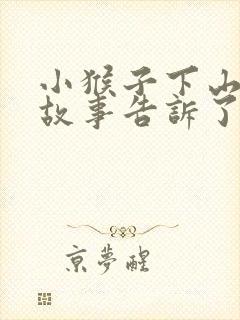 小猴子下山
故事告訴了
京夢醒